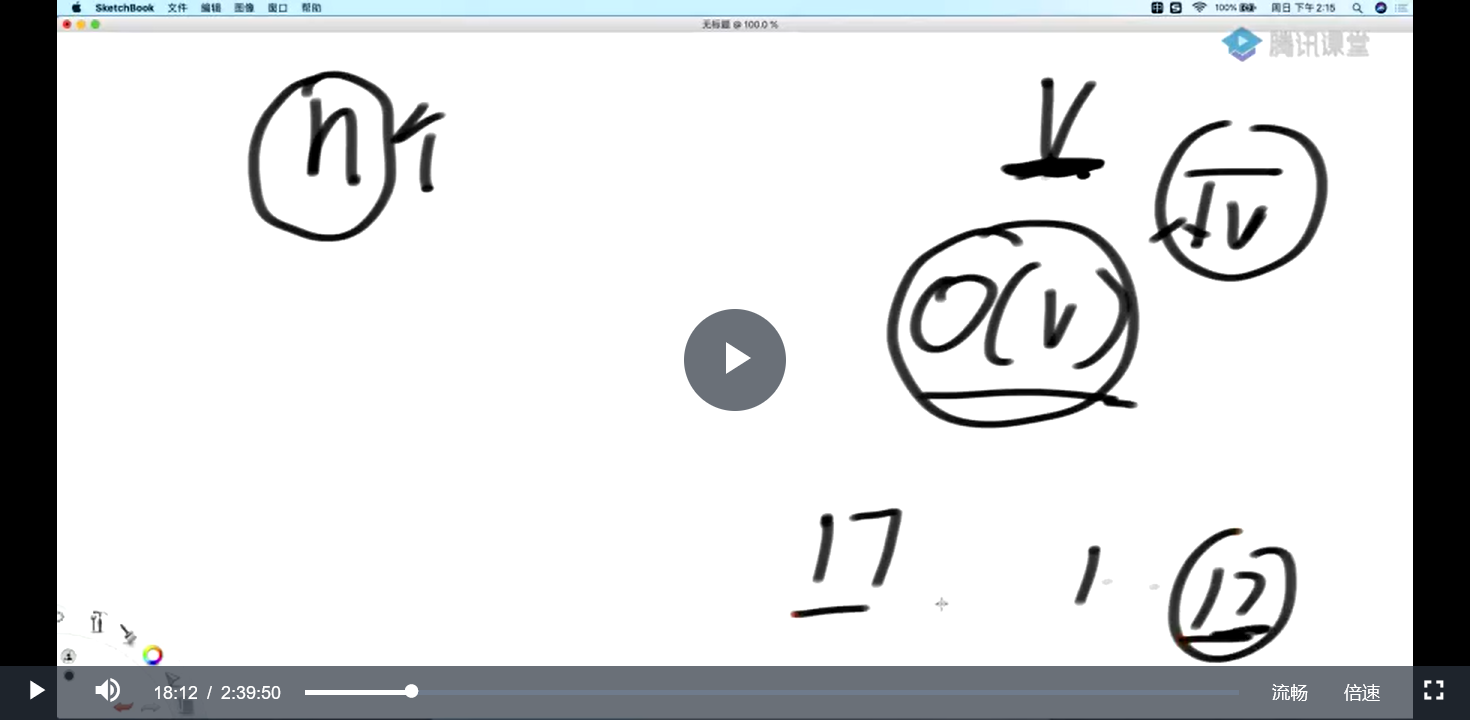 SketchBook 文件 编辑 图像 窗口 帮助 100% 周日 下午 2:15
无标题 @ 100.0 %
腾讯课堂
n
V
O(v)
17 1 17
18:12 / 2:39:50 流畅 倍速